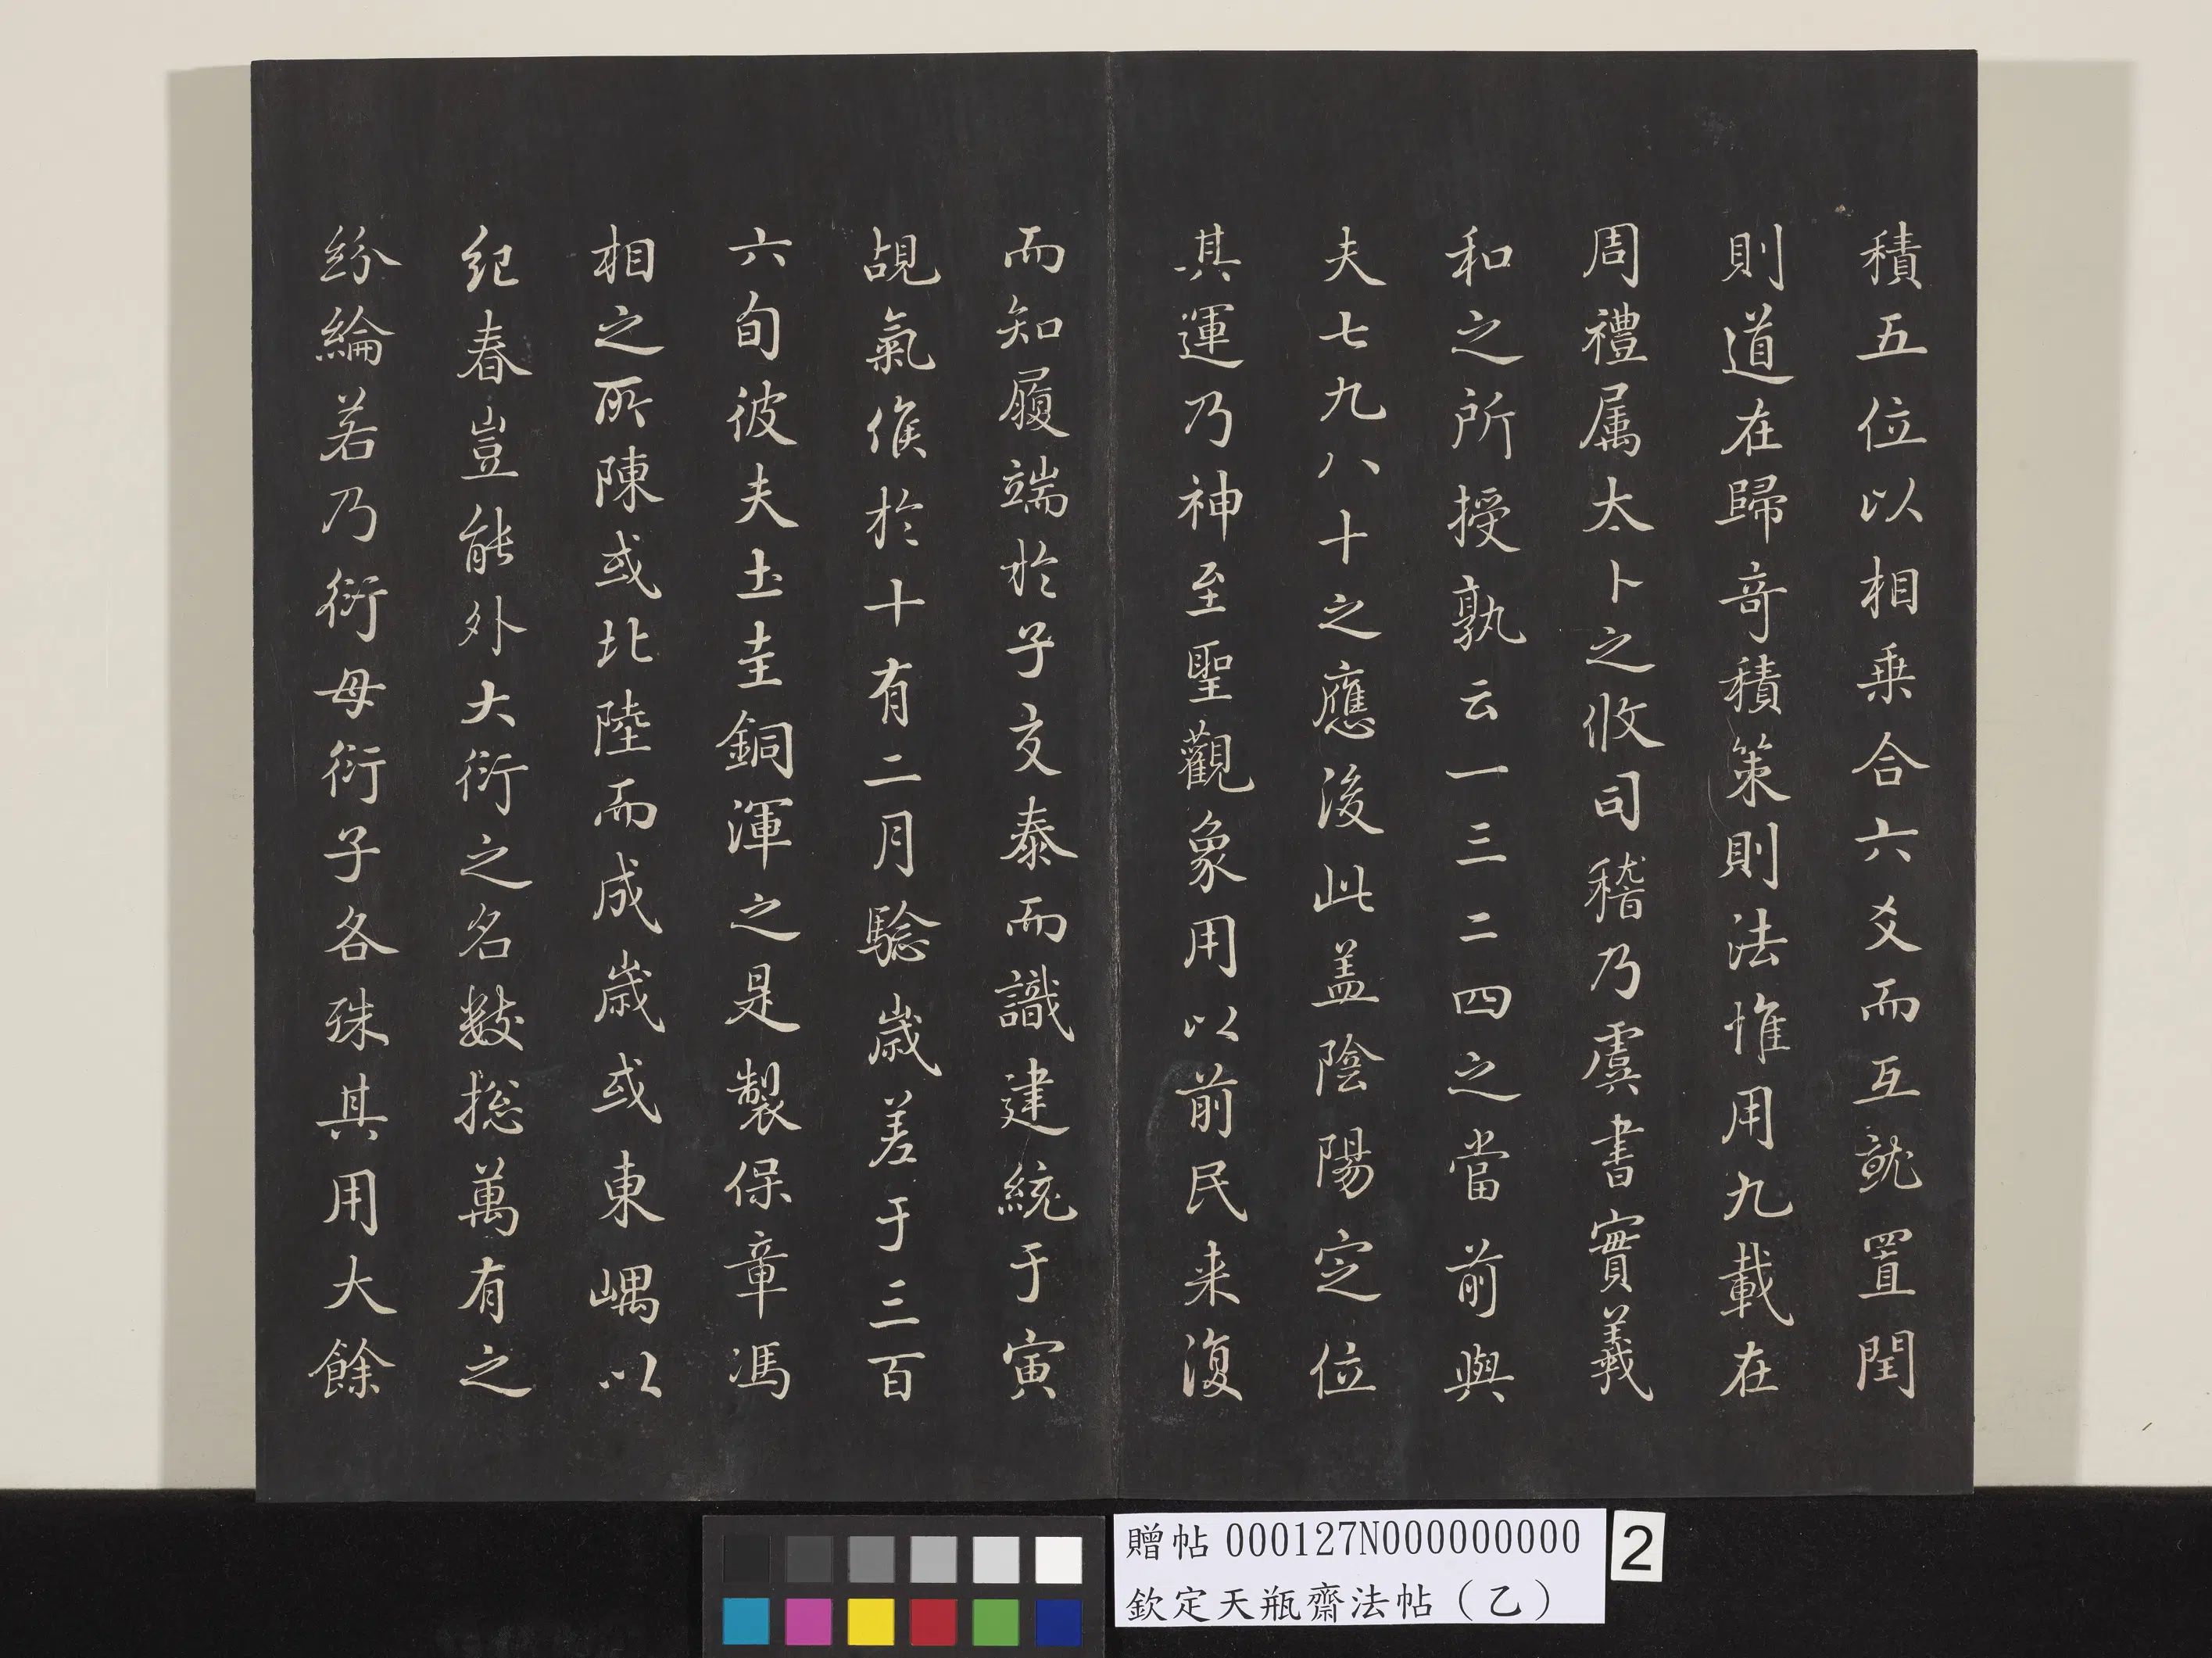 積五位以相乗合六爻而互就置閏
則道在歸竒積策則法惟用九載在
周禮属太卜之攸司稽乃虞書實羲
和之所授孰云一三二四之當前與
夫七九八十之應後此盖陰陽定位
其運乃神至聖觀象用以前民来復
而知履端於子交泰而識建統于寅
覘氣候於十有二月騐歲差于三百
六旬彼夫土圭銅渾之是製保章馮
相之所陳或北陸而成歲或東嵎以
紀春豈能外大衍之名數捴萬有之
紛綸若乃衍母衍子各殊其用大餘
贈帖000127N000000000
欽定天瓶齋法帖（乙）
2